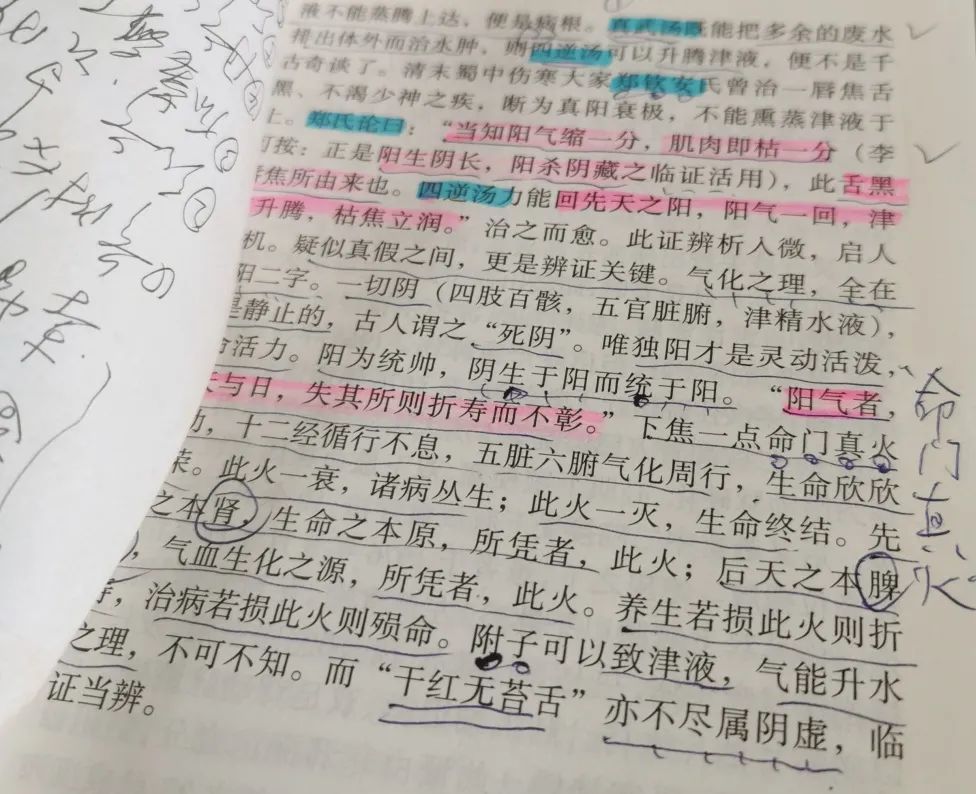 液不能蒸腾上达，便是病根。真武汤既能把多余的废水
排出体外而治水肿，则四逆汤可以升腾津液，便不是千
古奇谈了。清末蜀中伤寒大家郑钦安氏曾治一唇焦舌
黑、不渴少神之疾，断为真阳衰极，不能熏蒸津液于
上。郑氏论曰：“当知阳气缩一分，肌肉即枯一分（李
可按：正是阳生阴长，阳杀阴藏之临证活用），此舌黑
唇焦所由来也。四逆汤力能回先天之阳，阳气一回，津
升腾，枯焦立润。”治之而愈。此证辨析入微，启人
机。疑似真假之间，更是辨证关键。气化之理，全在
阳二字。一切阴（四肢百骸，五官脏腑，津精水液），
是静止的，古人谓之“死阴”。唯独阳才是灵动活泼，
命活力。阳为统帅，阴生于阳而统于阳。“阳气者，
天与日，失其所则折寿而不彰。”下焦一点命门真火
动，十二经循行不息，五脏六腑气化周行，生命欣欣
荣。此火一衰，诸病丛生；此火一灭，生命终结。先
之本肾，生命之本原，所凭者，此火；后天之本脾
，气血生化之源，所凭者，此火。养生若损此火则折
寿，治病若损此火则殒命。附子可以致津液，气能升水
之理，不可不知。而“干红无苔舌”亦不尽属阴虚，临
证当辨。
命门真火